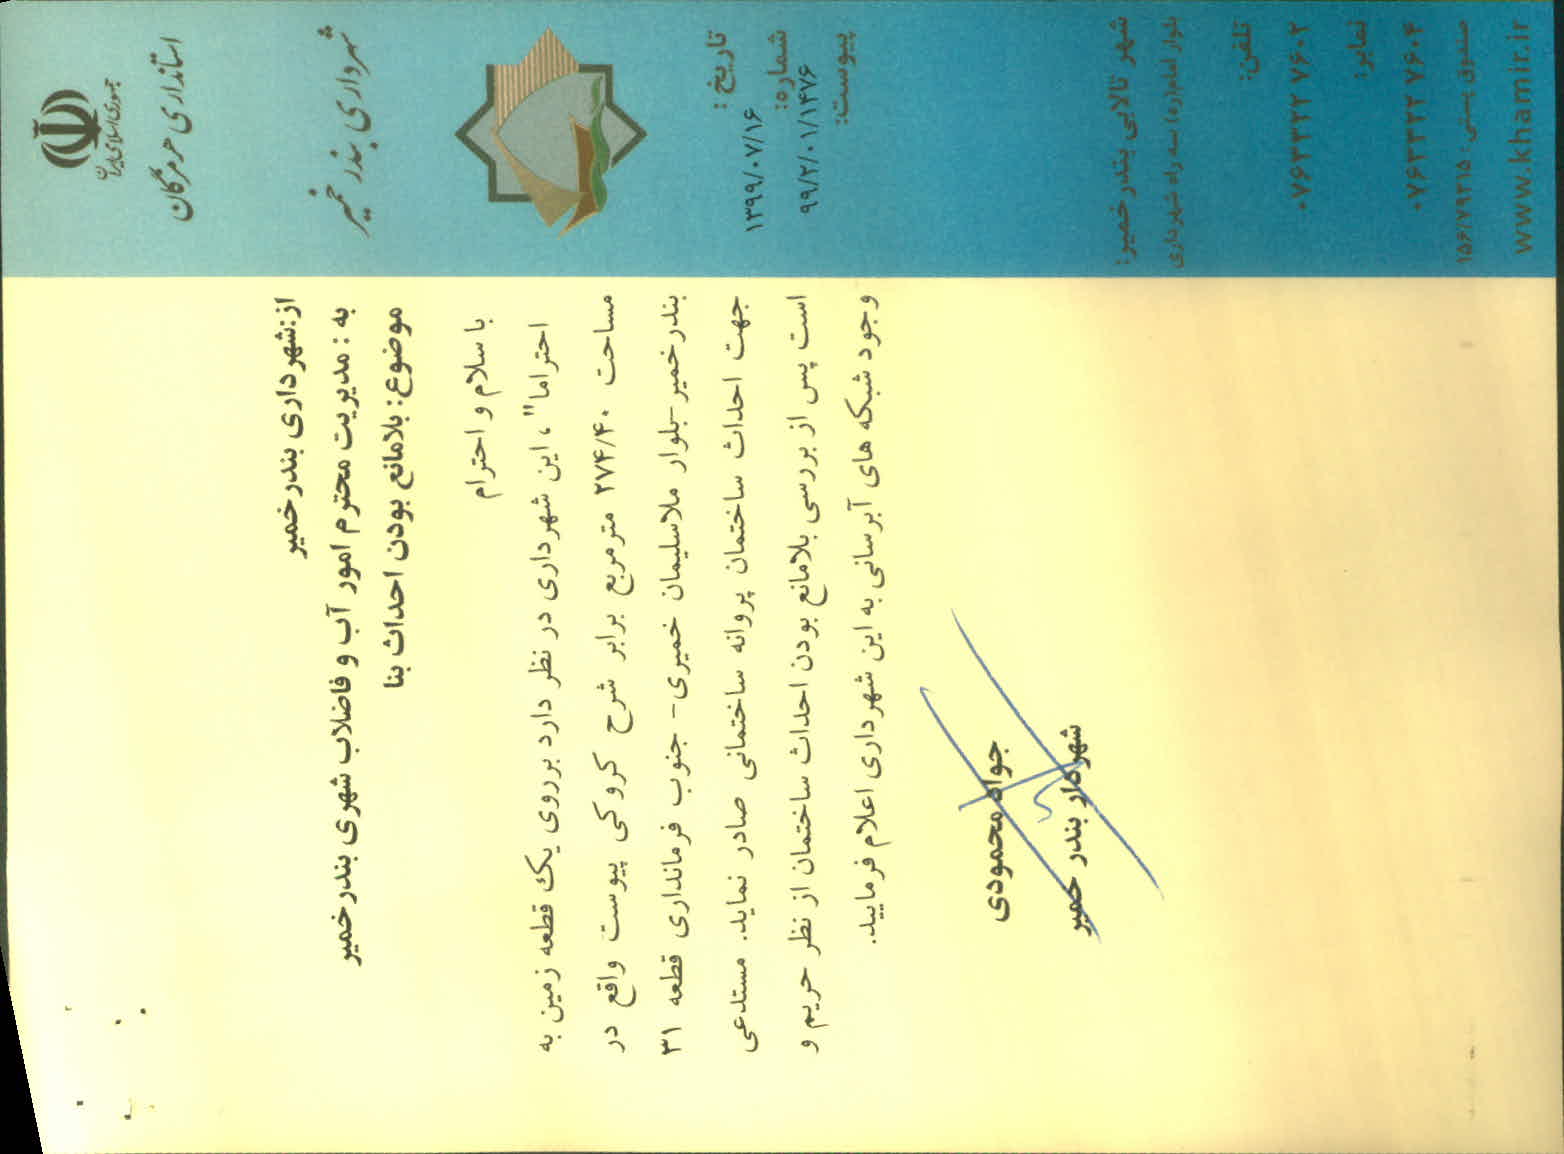 جمهوری اسلامی ایران
استانداری هرمزگان
شهرداری بندر خمیر
تاریخ: ۱۳۹۹/۰۷/۱۶
شماره: ۹۹/۲/۰۱/۱۴۷۶
پیوست:
شهر تالابی بندر خمیر:
بلوار امام(ره) سه راه شهرداری
تلفن:
۰۷۶۳۳۲۲ ۷۶۰۲
نمابر:
۰۷۶۳۳۲۲ ۷۶۰۴
صندوق پستی: ۱۵۶/۷۹۳۱۵
www.khamir.ir
از:شهرداری بندرخمیر
به : مدیریت محترم امور آب و فاضلاب شهری بندرخمیر
موضوع: بلامانع بودن احداث بنا
با سلام و احترام
احتراما"، این شهرداری در نظر دارد برروی یک قطعه زمین به
مساحت ۲۷۴/۴۰ مترمربع برابر شرح کروکی پیوست واقع در
بندرخمیر-بلوار ملاسلیمان خمیری- جنوب فرمانداری قطعه ۳۱
جهت احداث ساختمان پروانه ساختمانی صادر نماید. مستدعی
است پس از بررسی بلامانع بودن احداث ساختمان از نظر حریم و
وجود شبکه های آبرسانی به این شهرداری اعلام فرمایید.
جواد محمودی
شهردار بندر خمیر